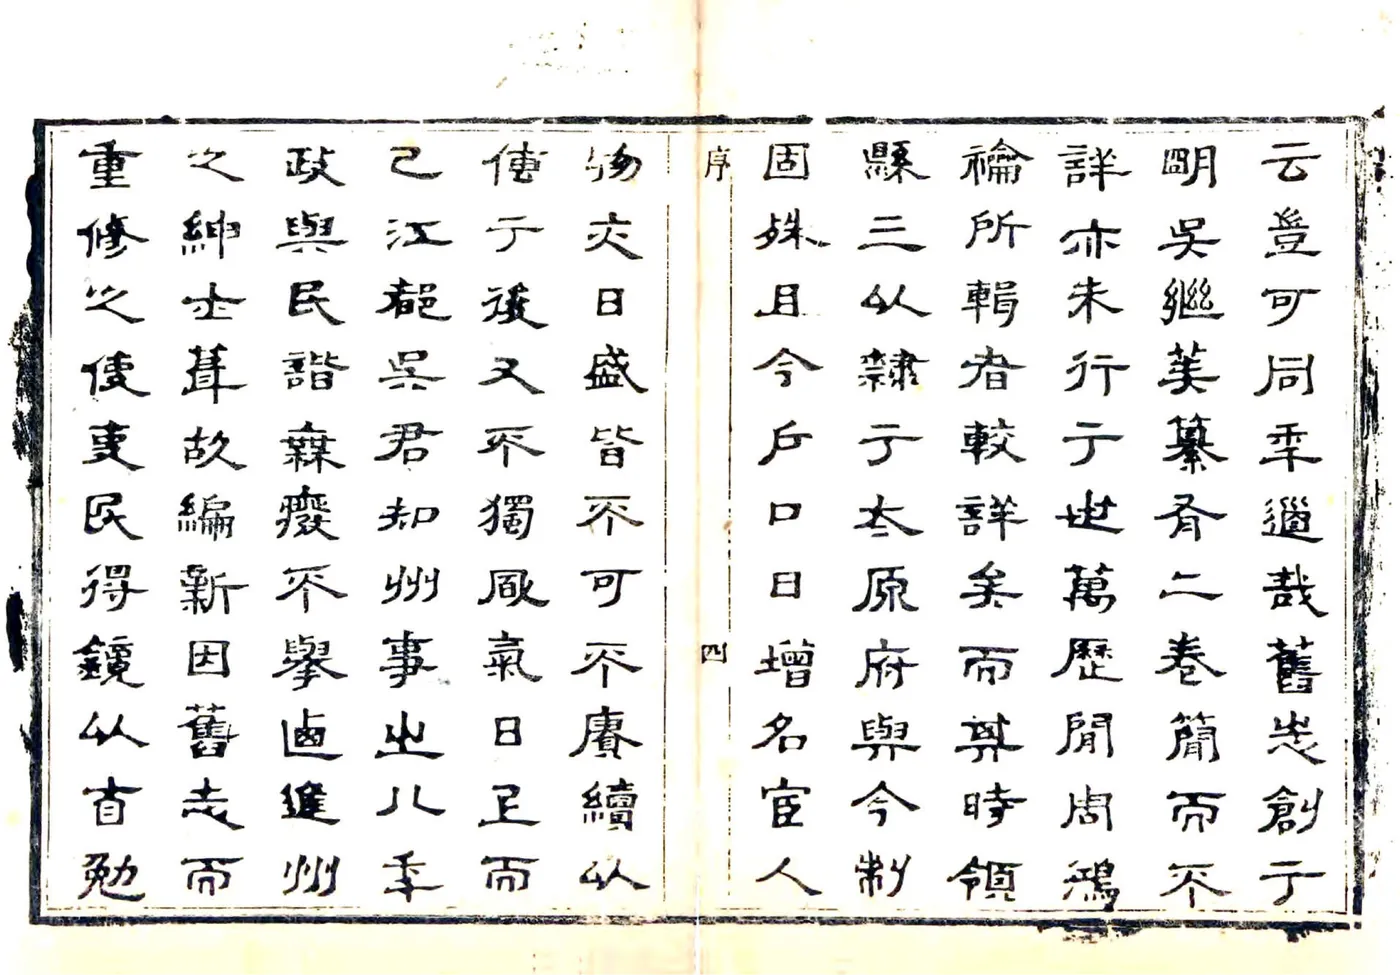 云豈可同季哉舊志創于
明吳繼美纂有二卷簡而不
詳亦未行于世萬歷閒周鴻
禴所輯者較詳矣而其時領
縣三以隸于太原府與今制
固殊且今戶口日增名宦人
序 四
物亦日盛皆不可不賡續以
傳于後又不獨風氣日正而
已江都吳君知州事之八季
政與民諧無廢不舉迺進州
之紳士葺故編新因舊志而
重修之使吏民得鏡以自勉